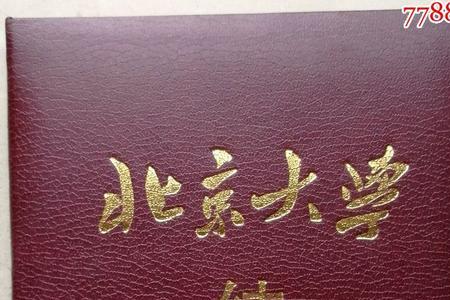 7788
北京大学